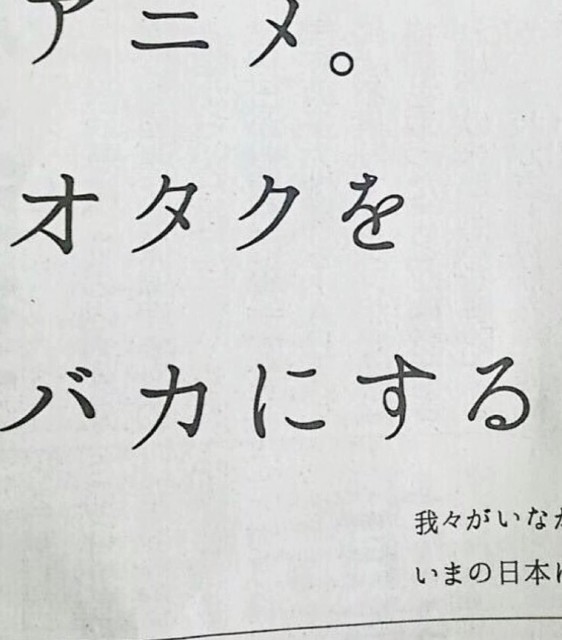 アニメ。
オタクを
バカにする
我々がいなか
いまの日本に